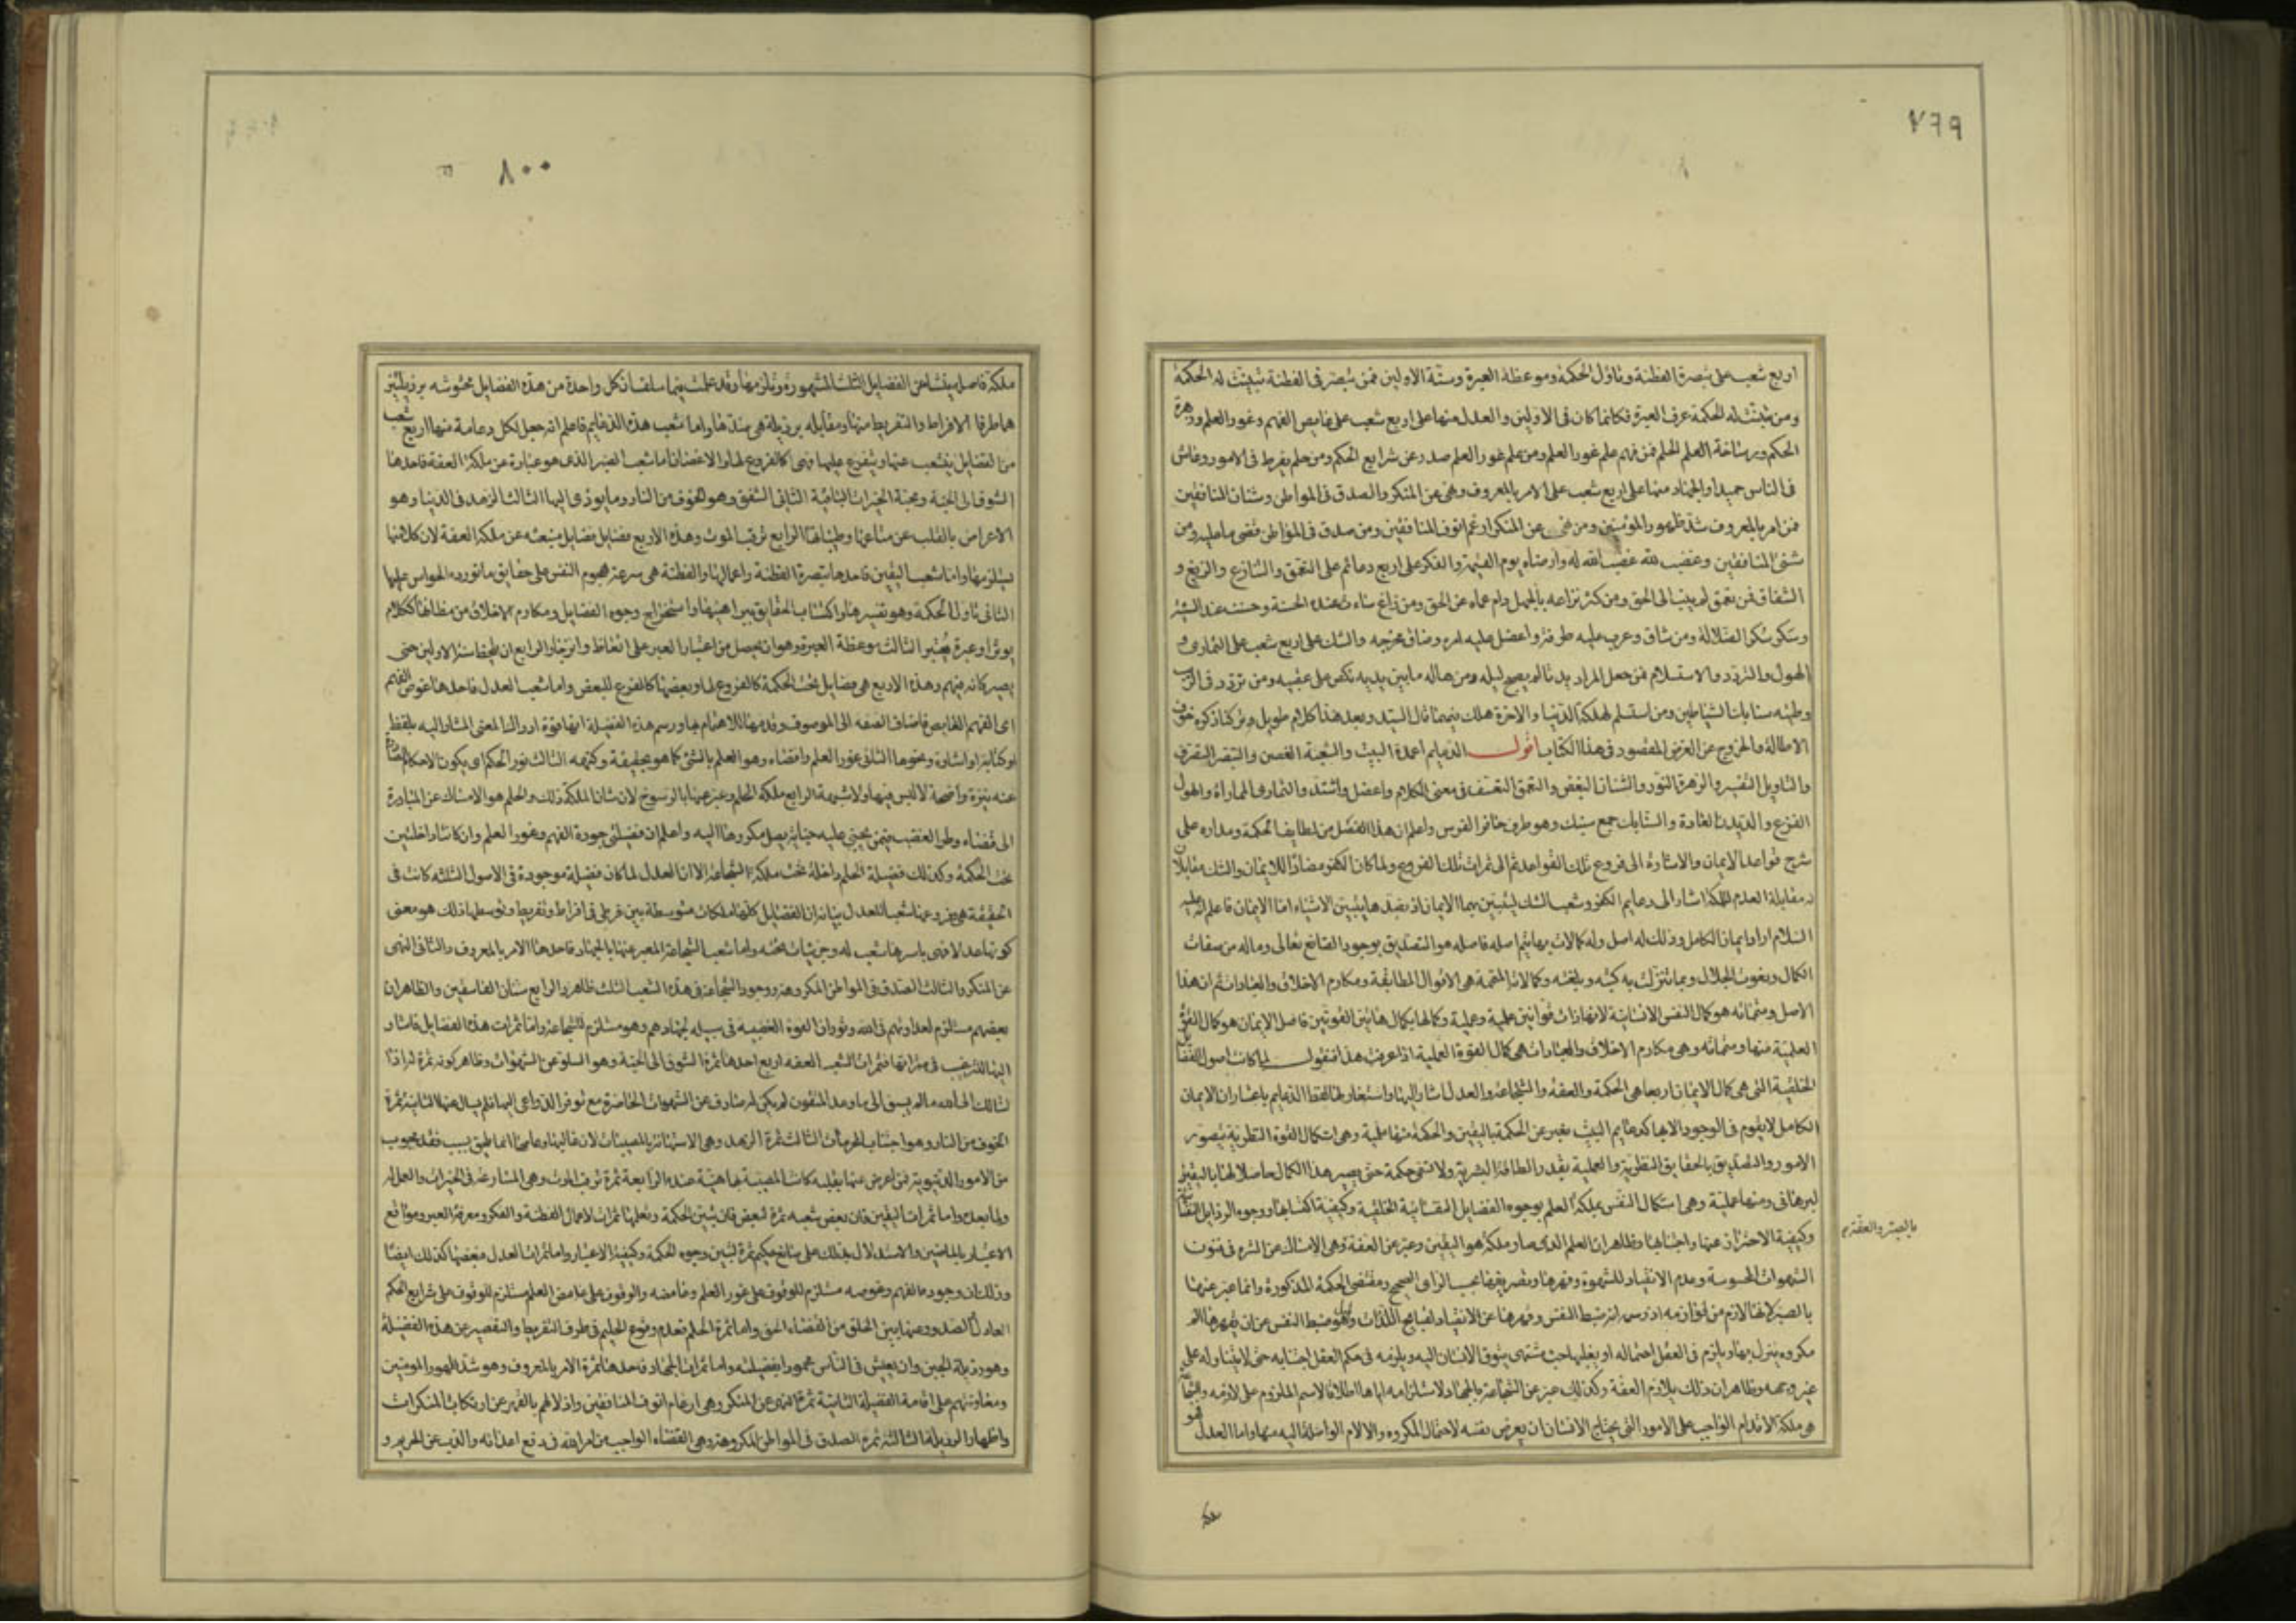 ٧٩٩
اربع شعب على تبصرة الفطنة وتاول الحكمة وموعظة العبرة وسنة الاولين فمن تبصر فى الفطنة تبينت له الحكمة
ومن تبينت له الحكمة عرف العبرة فكانما كان فى الاولين والعدل منها على اربع شعب على غايص الفهم وغور العلم وزهرة
الحكم ورساخة الحلم فمن فهم علم غور العلم ومن علم غور العلم صدر عن شرايع الحكم ومن حلم لم يفرط فى الامور وعاش
فى الناس حميدا والجهاد منها على اربع شعب على الامر بالمعروف ونهى عن المنكر والصدق فى المواطن وشنان المنافقين
فمن امر بالمعروف شد ظهور المؤمنين ومن نهى عن المنكر ارغم انوف المنافقين ومن صدق فى المواطن قضى ما عليه ومن
شنئ المنافقين وغضب لله غضب الله له وارضاه يوم القيمة والكفر على اربع دعائم على التعمق والتنازع والزيغ و
الشقاق فمن تعمق لم ينب الى الحق ومن كثر نزاعه بالجهل دام عماه عن الحق ومن زاغ ساءت عنده الحسنة وحسنت عنده السيئة
وسكر سكر الضلالة ومن شاق وعرت عليه طرقه واعضل عليه امره وضاق مخرجه والشك على اربع شعب على التمارى و
الهول والتردد والاستسلام فمن جعل المراء ديدنا لم يصبح ليله ومن هاله ما بين يديه نكص على عقبيه ومن تردد فى الريب
وطئته سنابك الشياطين ومن استسلم لهلكة الدنيا والاخرة هلك فيهما قال السيد وبعد هذا كلام طويل وتركنا ذكره خوف
الاطالة والخروج عن الغرض المقصود فى هذا الكتاب اقول الدعايم اعمدة البيت والشعبة الغصن والتبصر التعرف
والتاويل التفسير والزهرة النور والشنان البغض والتعمق التعسف فى معنى الكلام واعضل واشتد والتمارى المماراة والهول
الفزع والديدن العادة والسنابك جمع سنبك وهو طرف حافر الفرس واعلم ان هذا الفصل من لطايف الحكمة ومداره على
شرح قواعد الايمان والاشارة الى فروع تلك القواعد ثم الى ثمرات تلك الفروع ولما كان الكفر مضادا للايمان والشك مقابلا
له مقابلة العدم للملكة اشار الى دعايم الكفر وشعب الشك ليتبين بهما الايمان اذ بضدها يتبين الاشياء اما الايمان فاعلم انه عليه
السلام اراد الايمان الكامل وذلك له اصل وله كمالات بها يتم اصله فاصله هو التصديق بوجود الصانع تعالى وماله من صفات
الكمال ونعوت الجلال وبما تنزلت به كتبه وبلغته وكمالاته المتممة هى الاقوال المطابقة ومكارم الاخلاق والعبادات ثم ان هذا
الاصل ومتمماته هو كمال النفس الانسانية لانها ذات قوتين علمية وعملية وكمالها بكمال هاتين القوتين فاصل الايمان هو كمال القوة
العلمية منها ومتمماته وهى مكارم الاخلاق والعبادات هى كمال القوة العملية اذا عرفت هذا فنقول لما كانت اصول الفضايل
الخلقية التى هى كمال الايمان اربعا هى الحكمة والعفة والشجاعة والعدل اشار اليها واستعار لها لفظ الدعايم باعتبار ان الايمان
الكامل لا يقوم فى الوجود الا بها كدعايم البيت فعبر عن الحكمة باليقين والحكمة منها علمية وهى استكمال القوة النظرية بتصور
الامور والتصديق بالحقايق النظرية والعملية بقدر الطاقة البشرية ولا تسمى حكمة حتى يصير هذا الكمال حاصلا لها باليقين
البرهانى ومنها عملية وهى استكمال النفس بملكة العلم بوجوه الفضايل النفسانية الخلقية وكيفية اكتسابها ووجوه الرذايل النفسانية
وكيفية الاحتراز عنها واجتنابها وظاهر ان العلم الذى صار ملكة هو اليقين وعبر عن العفة وهى الامساك عن الشره فى فنون
بالصبر والعفة
الشهوات المحسوسة وعدم الانقياد للشهوة وقهرها وتصريفها بحسب الراى الصحيح ومقتضى الحكمة المذكورة وانما عبر عنها
بالصبر لانها لازم من لوازمه اذ رسمه انه ضبط النفس وقهرها عن الانقياد لقبايح اللذات وقيل هو ضبط النفس عن ان يقهرها الم
مكروه ينزل بها ويلزم فى العقل احتماله او يغلبها حب مشتهى يتوق الانسان اليه ويلزمه فى حكم العقل اجتنابه حتى لا يتناوله على
غير وجهه وظاهر ان ذلك يلازم العفة وكذلك عبر عن الشجاعة بالجهاد لاستلزامه اياها اطلاقا لاسم الملزوم على لازمه والشجاعة
هى ملكة الاقدام الواجب على الامور التى يحتاج الانسان ان يعرض نفسه لاحتمال المكروه والالام الواصلة اليه منها واما العدل فهو
٨٠٠
ملكة فاضلة ينشا عن الفضايل الثلث المشهورة وتلزمها وقد علمت فيما سلف ان كل واحدة من هذه الفضايل محتوشة برذيلتين
هما طرفا الافراط والتفريط منها ومقابلة برذيلة هى ضدها واما شعب هذه الدعايم فاعلم انه جعل لكل دعامة منها اربع شعب
من الفضايل يتشعب عنها ويتفرع عليها فهى كالفروع لها والاغصان اما شعب الصبر الذى هو عبارة عن ملكة العفة فاحدها
الشوق الى الجنة ومحبة الخيرات الباقية الثانى الشفق وهو الخوف من النار وما يودى اليها الثالث الزهد فى الدنيا وهو
الاعراض بالقلب عن متاعها وطيباتها الرابع ترقب الموت وهذه الاربع فضايل منبعثة عن ملكة العفة لان كلا منها
يستلزمها واما شعب اليقين فاحدها تبصرة الفطنة واعمالها والفطنة هى سرعة هجوم النفس على حقايق ما تورده الحواس عليها
الثانى تاول الحكمة وهو تفسيرها واكتساب الحقايق ببراهينها واستخراج وجوه الفضايل ومكارم الاخلاق من مظانها ككلام
يوثر او عبرة يعتبر الثالث موعظة العبرة وهو ان يحصل من اعتبار العبر على اتعاظ وانزجار الرابع ان يلحظ سنة الاولين حتى
يصير كانه فيهم وهذه الاربع هى فضايل تحت الحكمة كالفروع لها وبعضها كالفرع للبعض واما شعب العدل فاحدها غوص الفهم
اى الفهم الغايص فاضاف الصفة الى الموصوف وقدمها للاهتمام بها ورسم هذه الفضيلة انها قوة ادراك المعنى المشار اليه بلفظ
او كناية او اشارة ونحوها الثانى غور العلم واقصاه وهو العلم بالشئ كما هو بحقيقته وكنهه الثالث نور الحكم اى يكون الاحكام الصادرة
عنه نيرة واضحة لا لبس فيها ولا شبهة الرابع ملكة الحلم وعبر عنها بالرسوخ لان شان الملكة ذلك والحلم هو الامساك عن المبادرة
الى قضاء وطر الغضب فيمن يجنى عليه جناية يصل مكروهها اليه واعلم ان فضيلتى جودة الفهم وغور العلم وان كانتا داخلتين
تحت الحكمة وكذلك فضيلة الحلم داخلة تحت ملكة الشجاعة الا ان العدل لما كان فضيلة موجودة فى الاصول الثلثة كانت فى
الحقيقة هى وفروعها شعبا للعدل بيانه ان الفضايل كلها ملكات متوسطة بين طرفى افراط وتفريط وتوسطها ذلك هو معنى
كونها عدلا فهى باسرها شعب له وجزئيات تحته واما شعب الشجاعة المعبر عنها بالجهاد فاحدها الامر بالمعروف والثانى النهى
عن المنكر والثالث الصدق فى المواطن المكروهة ووجود الشجاعة فى هذه الشعب الثلث ظاهر والرابع شنان الفاسقين وظاهر ان
بغضهم مستلزم لعداوتهم فى الله وثوران القوة الغضبية فى سبيله لجهادهم وهو مستلزم للشجاعة واما ثمرات هذه الفضايل فاشار
اليها للترغيب فى مثمراتها فثمرات الشعب العفة اربع احدها ثمرة الشوق الى الجنة وهو السلو عن الشهوات وظاهر كونه ثمرة له اذ
السالك الى الله ما لم يسق الى ما وعد المتقون لم يكن له صارف عن الشهوات الحاضرة مع توفر الدواعى اليها فلم يسل عنها الثانية ثمرة
الخوف من النار وهو اجتناب المحرمات الثالث ثمرة الزهد وهى الاستهانة بالمصيبات لان غالبها وعامتها انما يلحق بسبب فقد محبوب
من الامور الدنيوية فمن اعرض عنها بقلبه كانت المصيبة بها هينة عنده الرابعة ثمرة ترقب الموت وهى المسارعة فى الخيرات والعمل له
ولما بعده واما ثمرات اليقين فان بعض شعبه ثمرة لبعض فان تبين الحكمة وتعلمها ثمرات لاعمال الفطنة والفكر ومعرفة العبر ومواقع
الاعتبار بالماضين والاستدلال بذلك على صانع حكيم ثمرة لتبين وجوه الحكمة وكيفية الاعتبار واما ثمرات العدل فبعضها كذلك ايضا
وذلك ان وجوده الفهم وغوصه مستلزم للوقوف على غور العلم وغامضه والوقوف على غامض العلم مستلزم للوقوف على شرايع الحكم
العادل والصدور عنها بين الخلق من القضاء الحق واما ثمرة الحلم فعدم وقوع الحليم فى طرف التفريط والتقصير عن هذه الفضيلة
وهو رذيلة الجبن وان يعيش فى الناس محمودا بفضيلته واما ثمرات الجهاد فاحدها ثمرة الامر بالمعروف وهو شد ظهور المومنين
ومعاونتهم على اقامة الفضيلة الثانية ثمرة النهى عن المنكر وهى ارغام انوف المنافقين واذلالهم بالقهر عن ارتكاب المنكرات
واظهار الرذيلة الثالثة ثمرة الصدق فى المواطن المكروهة وهى القضاء الواجب من امر الله فى دفع اعدائه والذب عن الحريم و